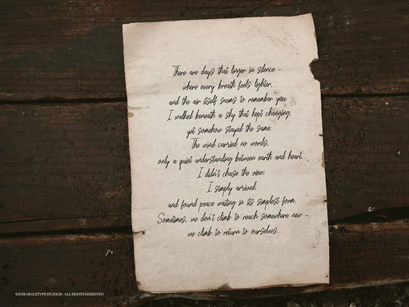 There are days that linger in silence -
where every breath feels lighter,
and the air itself seems to remember you.
I walked beneath a sky that kept changing,
yet somehow stayed the same.
The wind carried no words,
only a quiet understanding between earth and heart.
I didn't chase the view.
I simply arrived,
and found peace waiting in its simplest form.
Sometimes, we don't climb to reach somewhere new -
we climb to return to ourselves.
GRACETYPE STUDIO - ALL RIGHTS RESERVED